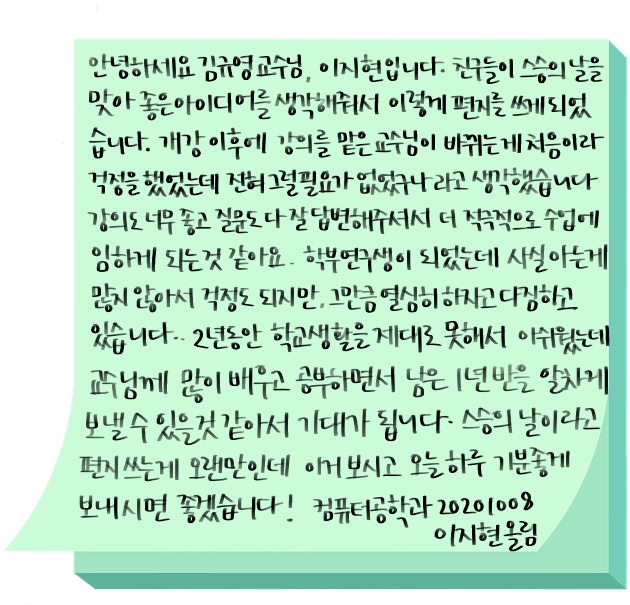 안녕하세요 김규영교수님, 이지현입니다. 친구들이 스승의 날을
맞아 좋은아이디어를 생각해줘서 이렇게 편지를 쓰게 되었
습니다. 개강 이후에 강의를 맡은 교수님이 바뀌는게 처음이라
걱정을 했었는데 전혀 그럴필요가 없었구나 라고 생각했습니다
강의도 너무 좋고 질문도 다 잘 답변해주셔서 더 적극적으로 수업에
임하게 되는것 같아요. 학부연구생이 되었는데 사실 아는게
많지 않아서 걱정도 되지만, 그만큼 열심히 하자고 다짐하고
있습니다.. 2년동안 학교생활을 제대로 못해서 아쉬웠는데
교수님께 많이 배우고 공부하면서 남은 1년 반을 알차게
보낼 수 있을것 같아서 기대가 됩니다. 스승의 날이라고
편지쓰는게 오랜만인데 이거 보시고 오늘 하루 기분좋게
보내시면 좋겠습니다! 컴퓨터공학과 20201008
이지현 올림